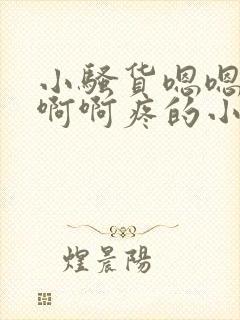 小骚货嗯嗯
啊啊疼的小
煌晨陽